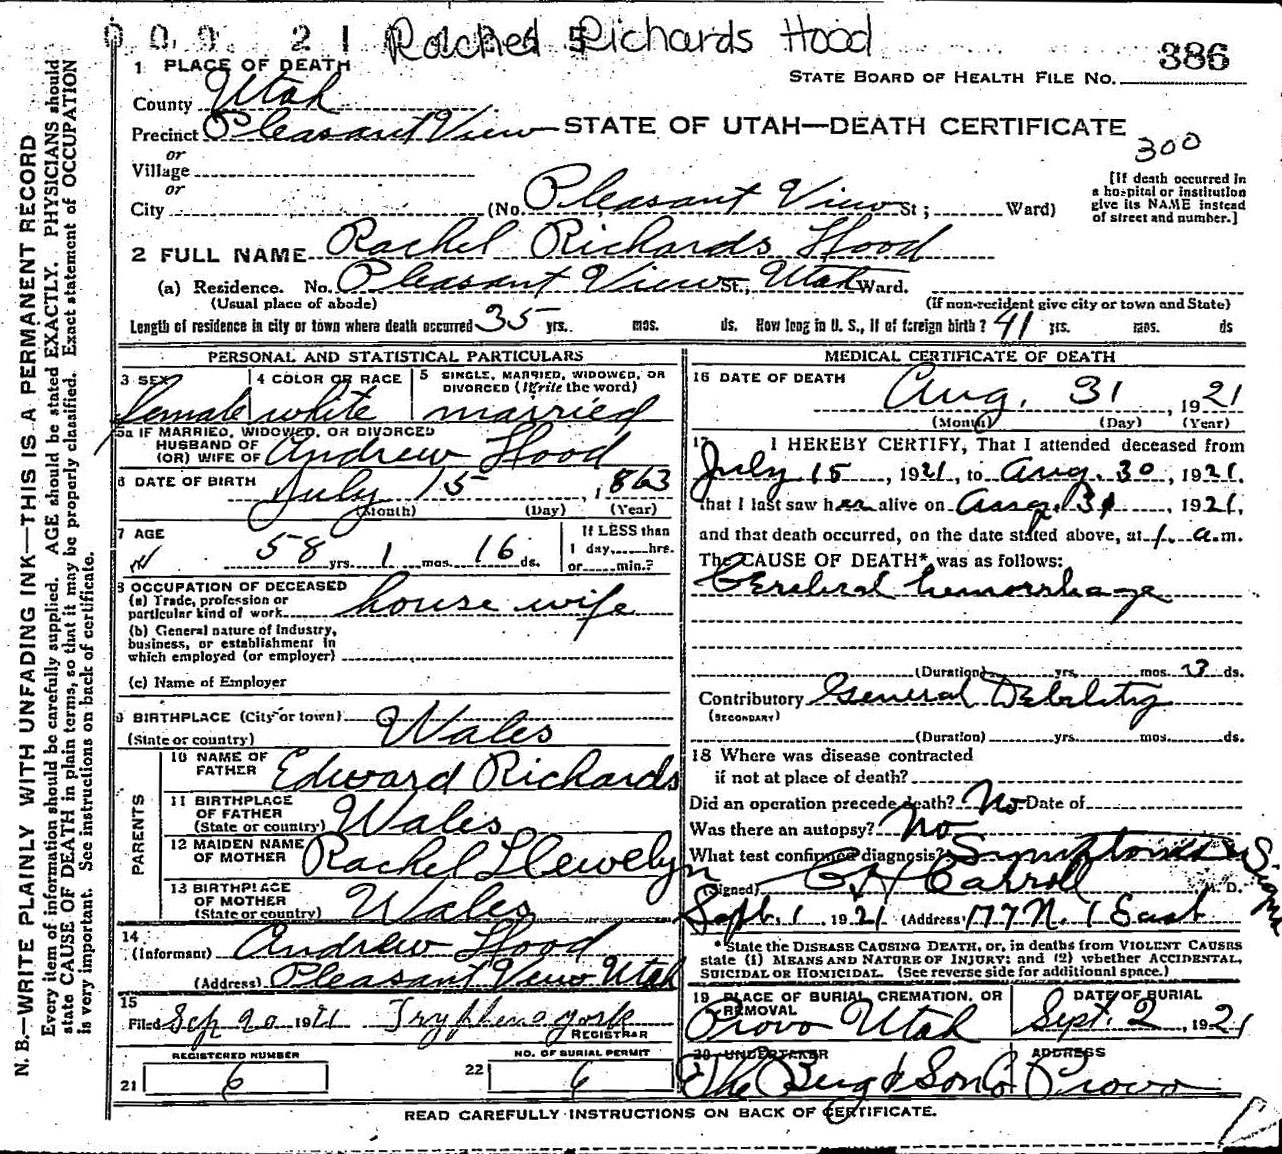 009 21
Rachel Richards Hood
386
STATE BOARD OF HEALTH FILE NO.
1 PLACE OF DEATH
County Utah
Precinct Pleasant View
STATE OF UTAH—DEATH CERTIFICATE
300
or
Village
or
City (No. Pleasant View St; Ward)
[If death occurred in
a hospital or institution
give its NAME instead
of street and number.]
2 FULL NAME Rachel Richards Hood
(a) Residence. No. Pleasant View St., Utah Ward.
(Usual place of abode) (If non-resident give city or town and State)
Length of residence in city or town where death occurred 35 yrs. mos. ds. How long in U. S., if of foreign birth? 41 yrs. mos. ds
PERSONAL AND STATISTICAL PARTICULARS
3 SEX female
4 COLOR OR RACE white
5 SINGLE, MARRIED, WIDOWED, OR
DIVORCED (Write the word)
married
5a IF MARRIED, WIDOWED, OR DIVORCED
HUSBAND OF
(OR) WIFE OF Andrew Hood
6 DATE OF BIRTH July 15, 1863
(Month) (Day) (Year)
7 AGE 58 yrs. 1 mos. 16 ds.
If LESS than
1 day, hrs.
or min.?
8 OCCUPATION OF DECEASED
(a) Trade, profession or
particular kind of work house wife
(b) General nature of industry,
business, or establishment in
which employed (or employer)
(c) Name of Employer
9 BIRTHPLACE (City or town)
(State or country) Wales
PARENTS
10 NAME OF
FATHER Edward Richards
11 BIRTHPLACE
OF FATHER
(State or country) Wales
12 MAIDEN NAME
OF MOTHER Rachel Llewelyn
13 BIRTHPLACE
OF MOTHER
(State or country) Wales
14
(Informant) Andrew Hood
(Address) Pleasant View Utah
15
Filed Sep 20 1921 Tryphena York
REGISTRAR
REGISTERED NUMBER
21 6
NO. OF BURIAL PERMIT
22 6
MEDICAL CERTIFICATE OF DEATH
16 DATE OF DEATH Aug. 31, 1921
(Month) (Day) (Year)
17 I HEREBY CERTIFY, That I attended deceased from
July 15, 1921, to Aug. 30, 1921.
that I last saw her alive on Aug. 31, 1921,
and that death occurred, on the date stated above, at 1. a.m.
The CAUSE OF DEATH* was as follows:
Cerebral hemorrhage
(Duration) yrs. mos. 3 ds.
Contributory General Debility
(SECONDARY)
(Duration) yrs. mos. ds.
18 Where was disease contracted
if not at place of death?
Did an operation precede death? No Date of
Was there an autopsy? No
What test confirmed diagnosis? Symptoms & Signs
(Signed) C H Carroll M. D.
Sept. 1, 1921 (Address) 177 N. 1 East
*State the DISEASE CAUSING DEATH, or, in deaths from VIOLENT CAUSES
state (1) MEANS AND NATURE OF INJURY; and (2) whether ACCIDENTAL,
SUICIDAL OR HOMICIDAL. (See reverse side for additional space.)
19 PLACE OF BURIAL, CREMATION, OR
REMOVAL
Provo Utah
DATE OF BURIAL
Sept. 2, 1921
20 UNDERTAKER
The Berg & Son Co
ADDRESS
Provo
READ CAREFULLY INSTRUCTIONS ON BACK OF CERTIFICATE.
N. B.—WRITE PLAINLY WITH UNFADING INK—THIS IS A PERMANENT RECORD
Every item of information should be carefully supplied. AGE should be stated EXACTLY. PHYSICIANS should
state CAUSE OF DEATH in plain terms, so that it may be properly classified. Exact statement of OCCUPATION
is very important. See instructions on back of certificate.